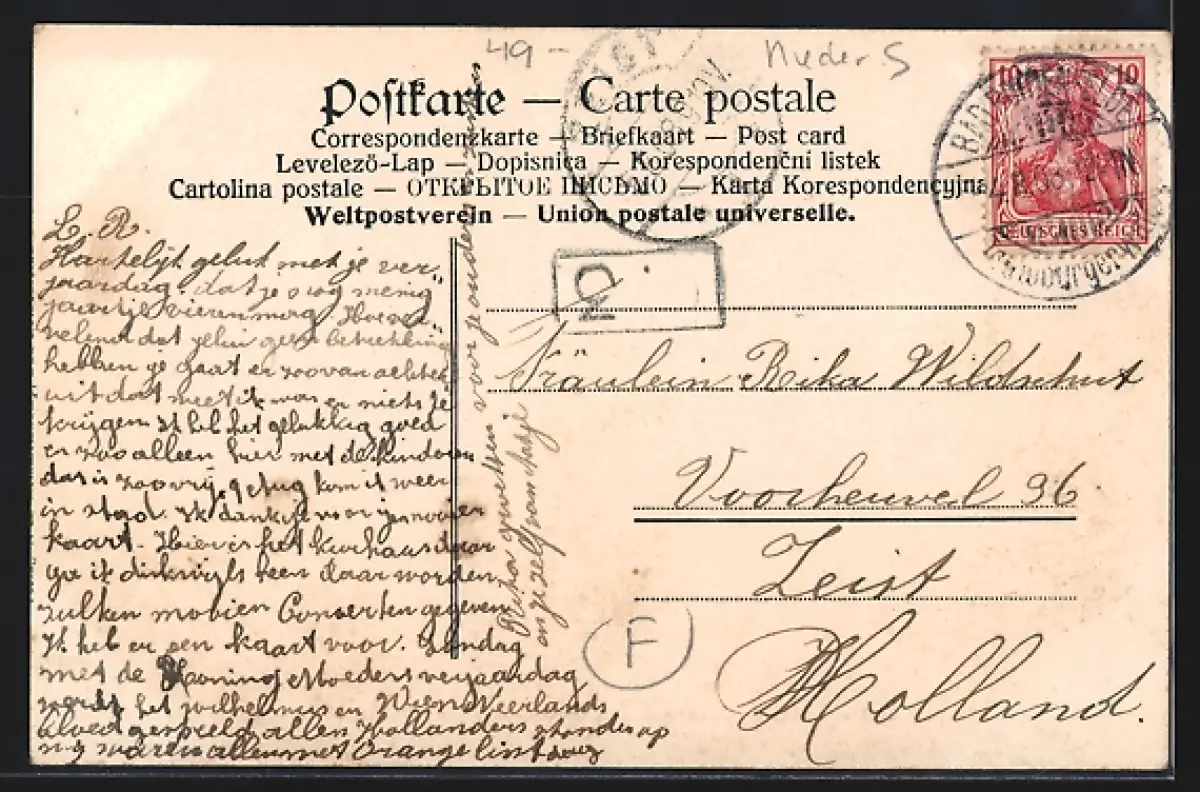 49 - Nieder S
Postkarte — Carte postale
Correspondenzkarte — Briefkaart — Post card
Levelező-Lap — Dopisnica — Korespondenční listek
Cartolina postale — ОТКРЫТОЕ ПИСЬМО — Karta Korespondencyjna
Weltpostverein — Union postale universelle.
10 10
DEUTSCHES REICH
L. R.
Hartelijk geluk met je ver-
jaardag. dat je nog menig
jaartje vieren mag. Hoever-
velend dat jelui geen betrekking
hebben je gaat er zoo van achter
uit dat weet ik was er niets te
krijgen ik heb het gelukkig goed
en zoo alleen hier met de kinderen
dat is zoo vrij. genug kom ik weer
in stad. Ik dank je voor je mooie
kaart. Hier is het kurhaus daar
ga ik dikwijls heen daar worden
zulken mooien Conserten gegeven
Ik heb er een kaart voor. Zondag
met de Koningmoeders verjaardag
werd het wilhelmus en Wien Neerlands
bloed gespeeld allen Hollanders stonden op
wij waren allen met Orange lint
voor je ouders en
en je zelf van
Fräulein Rika Wildschut
Voorheuvel 96
Zeist
Holland.
F